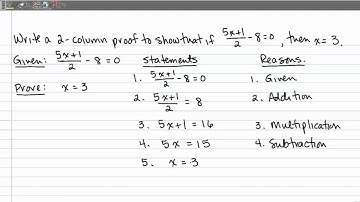 Write a 2-column proof to show that if (5x+1)/2 - 8 = 0, then x = 3.
Given: (5x+1)/2 - 8 = 0 Statements Reasons.
1. (5x+1)/2 - 8 = 0 1. Given
Prove: x = 3
2. (5x+1)/2 = 8 2. Addition
3. 5x+1 = 16 3. Multiplication
4. 5x = 15 4. Subtraction
5. x = 3